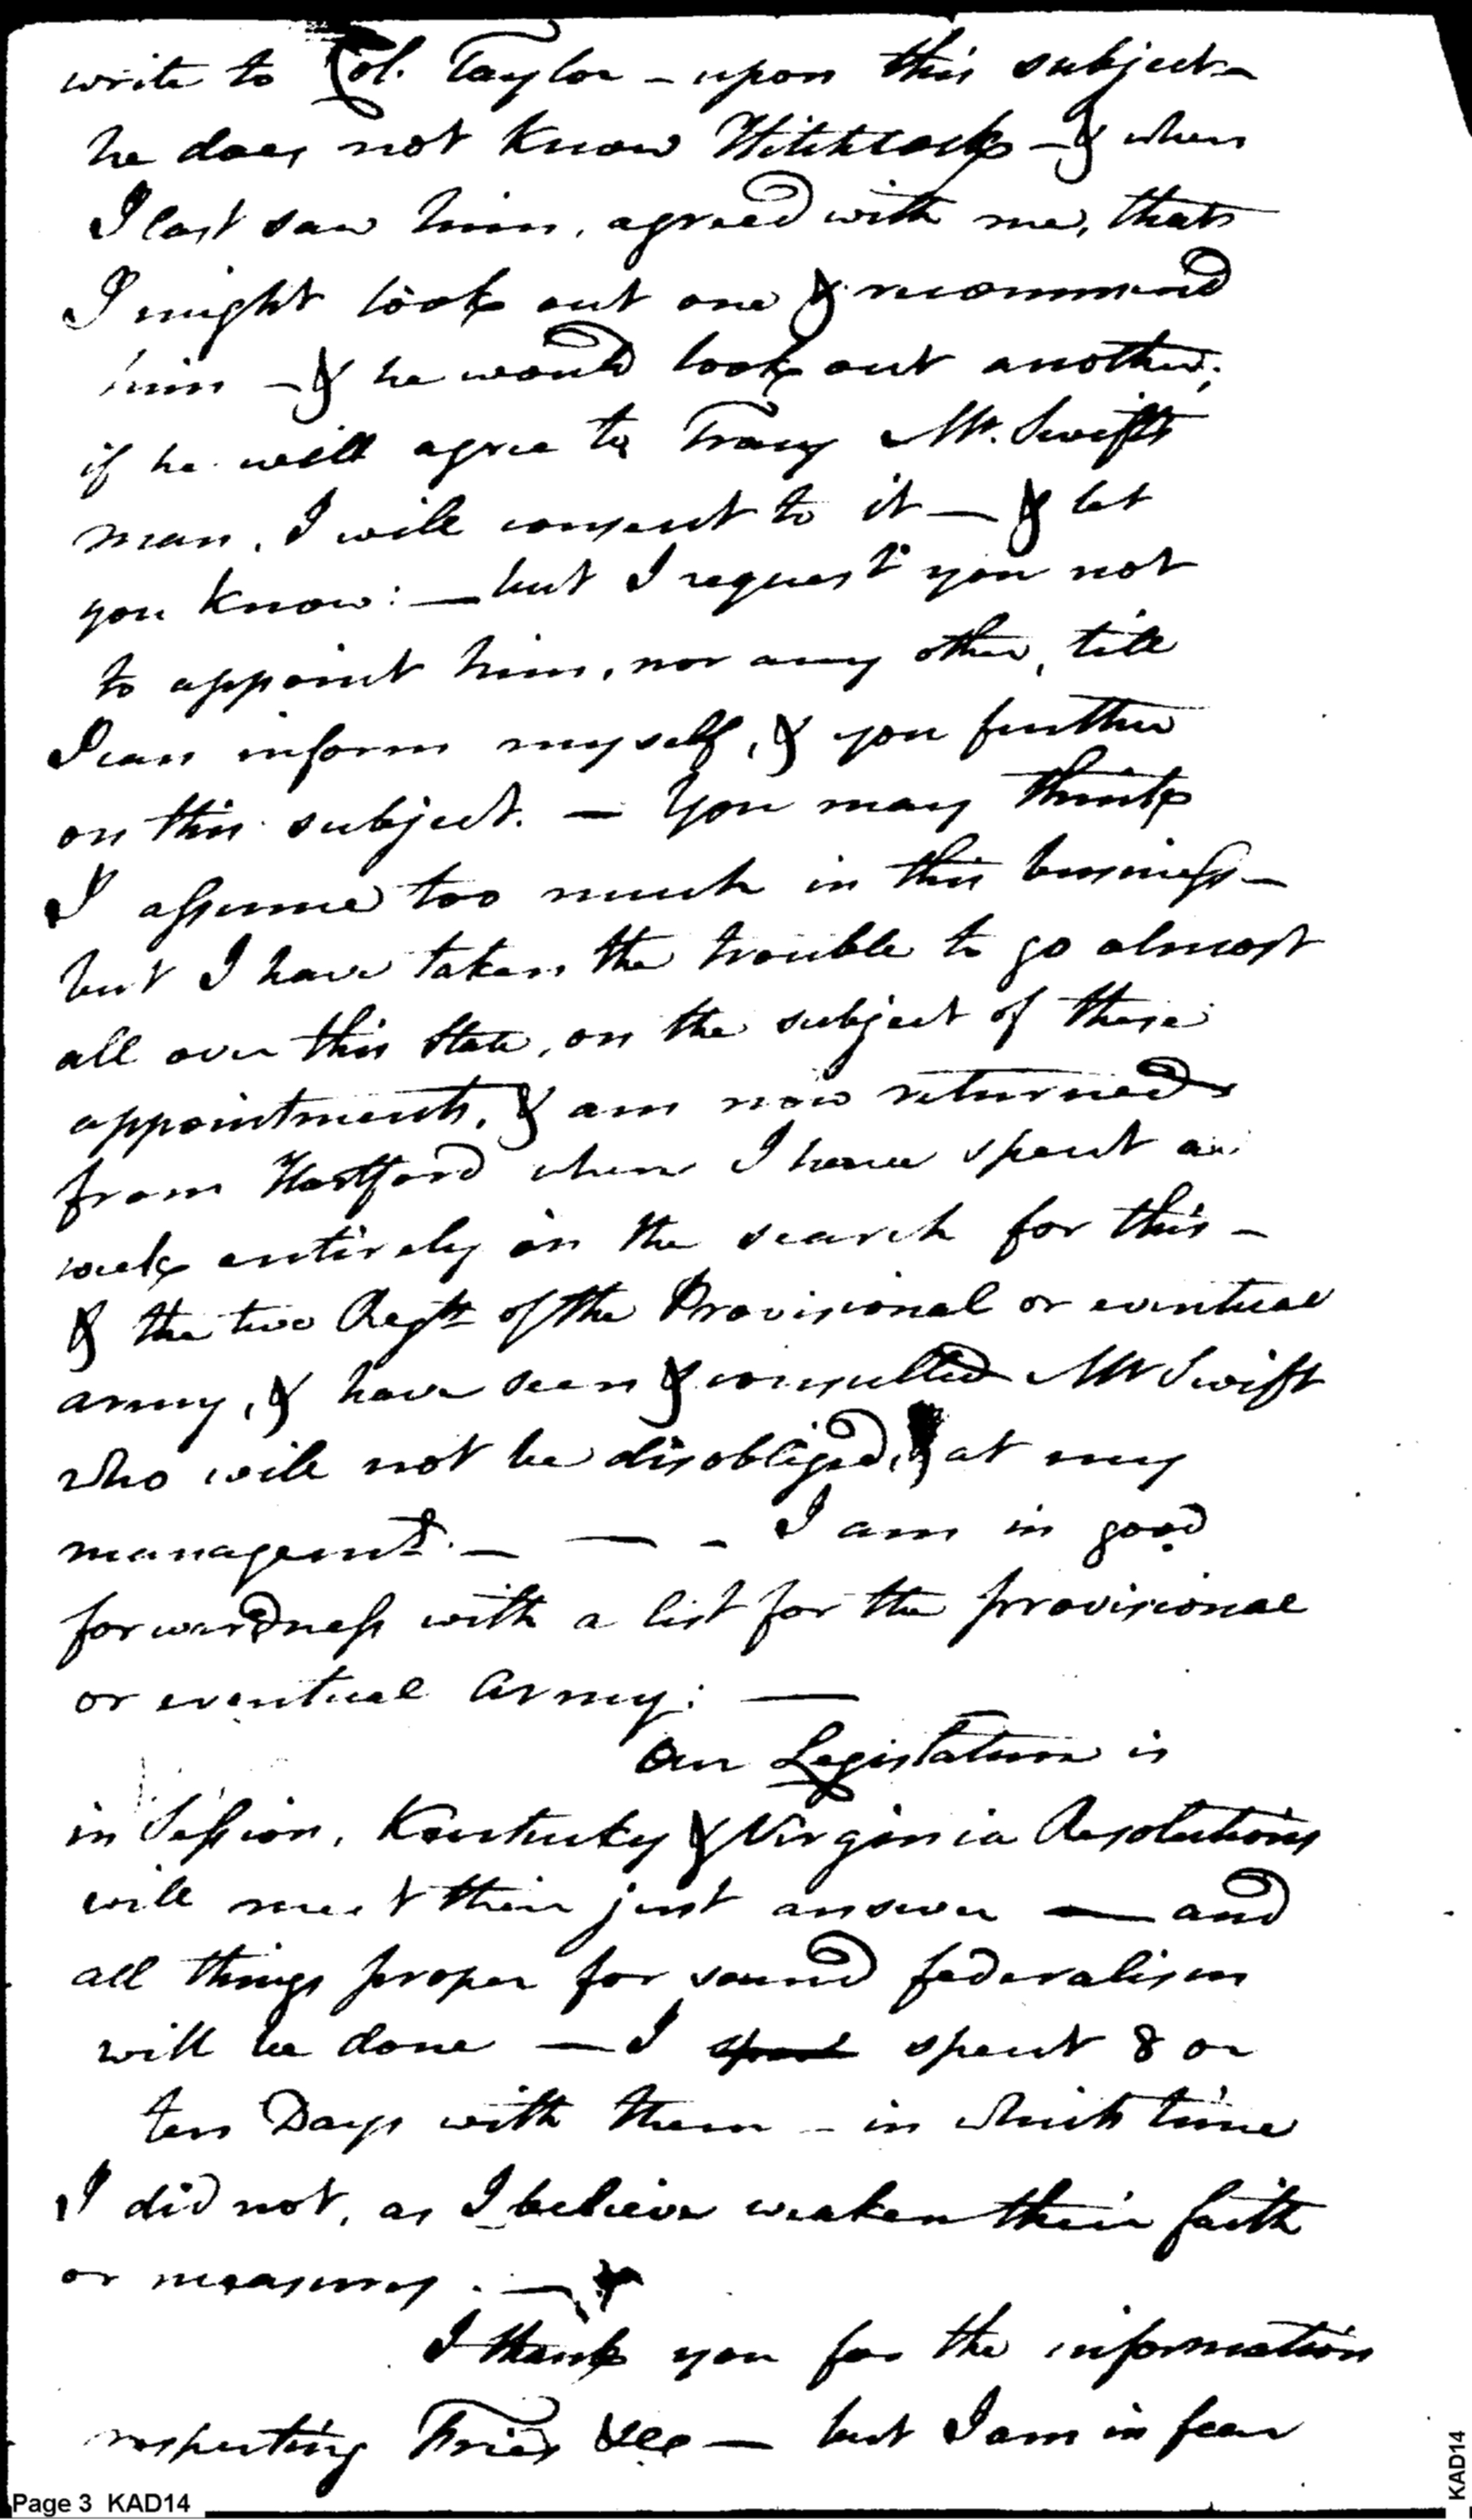 write to Col. Taylor – upon this subject –
he does not know Hitchcock – & when
I last saw him, agreed with me, that
I might look out one & recommend
him – & he would look out another;
if he will agree to Tracy Mr. Swifts
man, I will consent to it — & let
you know: — but I request you not
to appoint him, nor any other, till
I can inform myself, & you further
on this subject. — You may think
I assume too much in this business –
but I have taken the trouble to go almost
all over this State, on the subject of these
appointments, & am now returned
from Hartford where I have spent a
week entirely in the search for this –
& the two Regts of the Provisional or eventual
army, & have seen & consulted Mr Swift
who will not be disobliged, at my
management. – — – I am in good
forwardness with a list for the provisional
or eventual Army: —
Our Legislature is
in Session, Kentucky & Virginia Resolutions
will meet their just answer — and
all things proper for sound federalism
will be done — I spent spent 8 or
ten Days with them – in which time
I did not, as I believe weaken their faith
or measures. —
I thank you for the information
respecting Fries &c — but I am in fear
Page 3 KAD14
KAD14